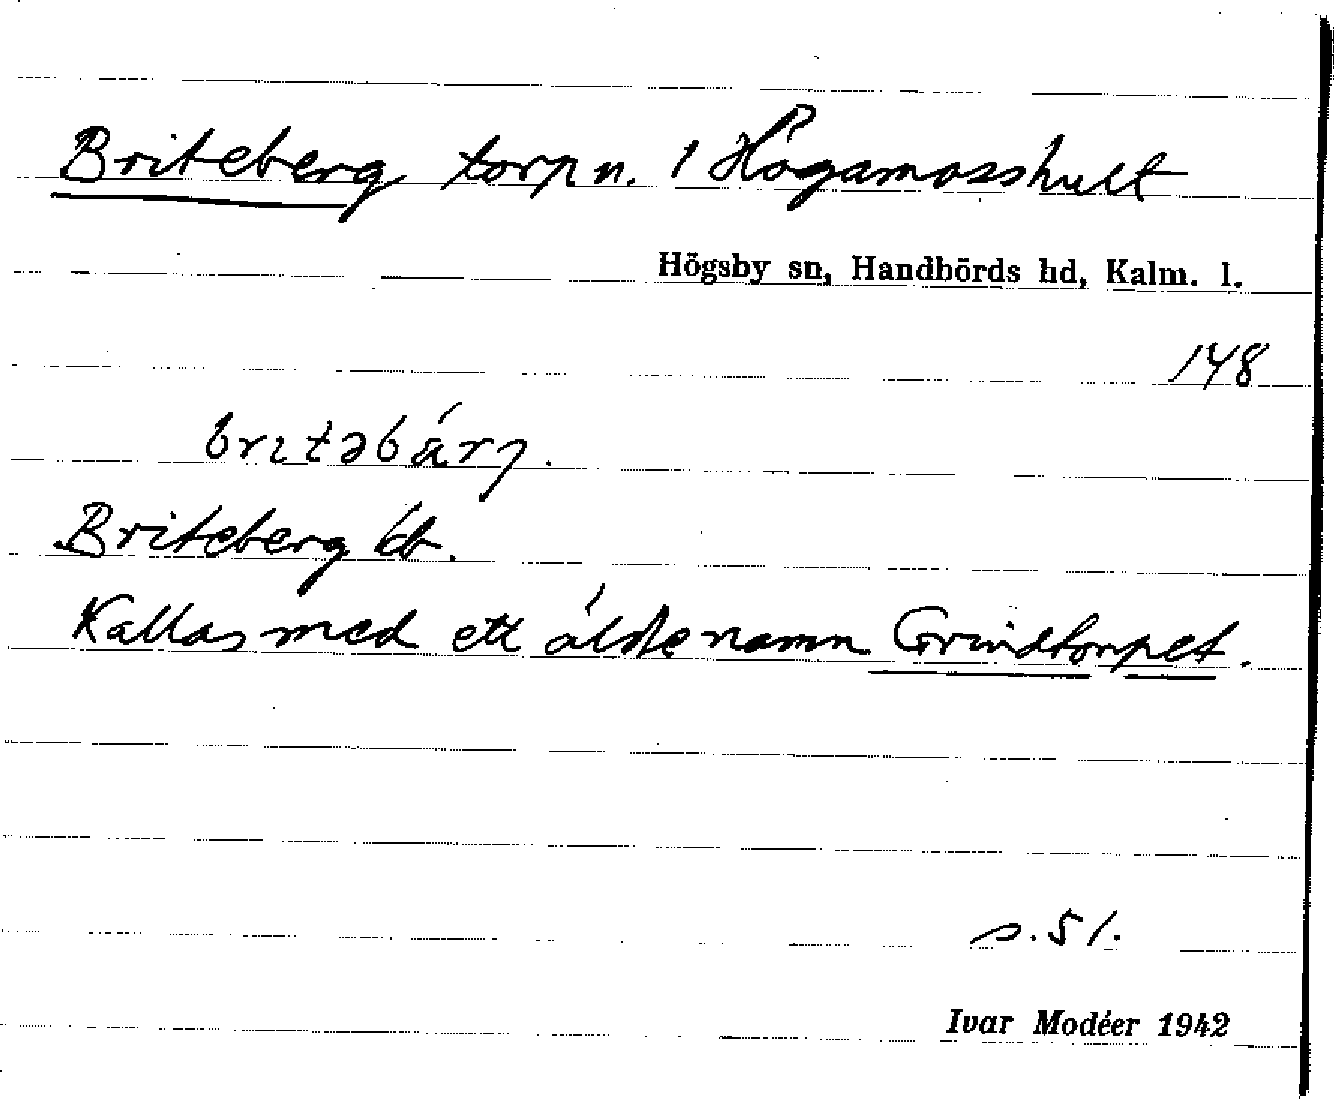 Briteberg torp n. / Högamosshult
Högsby sn, Handbörds hd, Kalm. l.
148
britəbärj.
Briteberg kb.
Kallas med ett äldre namn Grindtorpet.
s. 51.
Ivar Modéer 1942